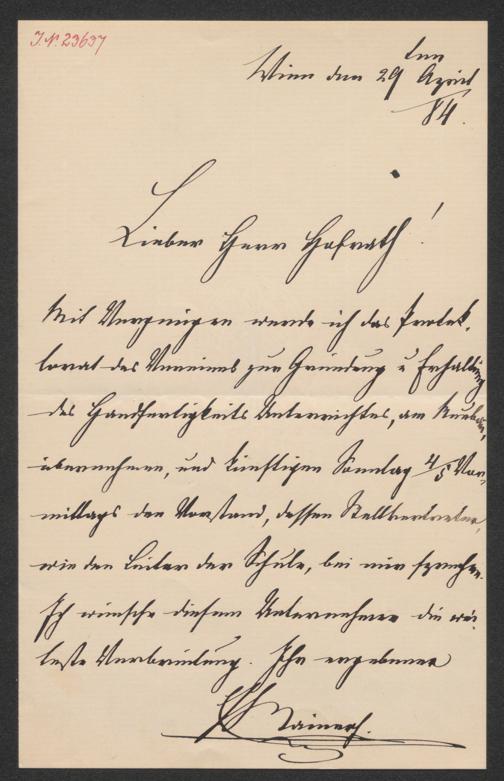 J.N. 23637
Wien den 29ten April
/84.
Lieber Herr Hofrath!
Mit Vergnügen werde ich das Protek-
torat des Vereines zur Gründung u Erhaltung
des Handfertigkeits Unterrichtes, am Neubau,
übernehmen, und künftigen Sonntag 4/5 Vor-
mittags den Vorstand, dessen Stellvertreter,
wie den Leiter der Schule, bei mir sprechen.
Ich wünsche diesem Unternehmen die wei-
teste Verbreitung. Ihr ergebener
EH Rainer.